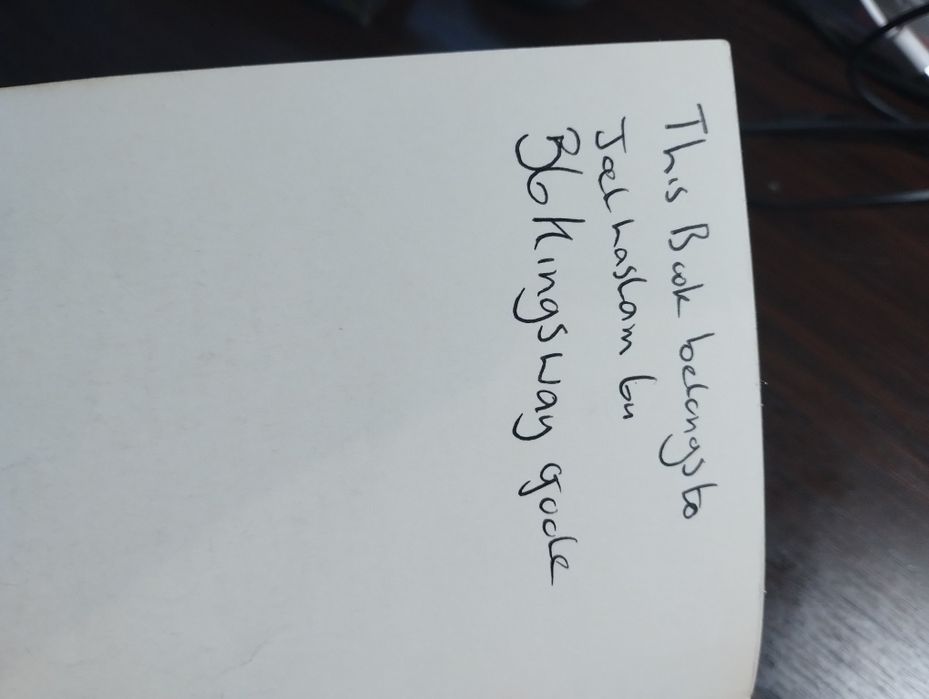 This Book belongs to
Joel haslam 6u
36 Kingsway goole